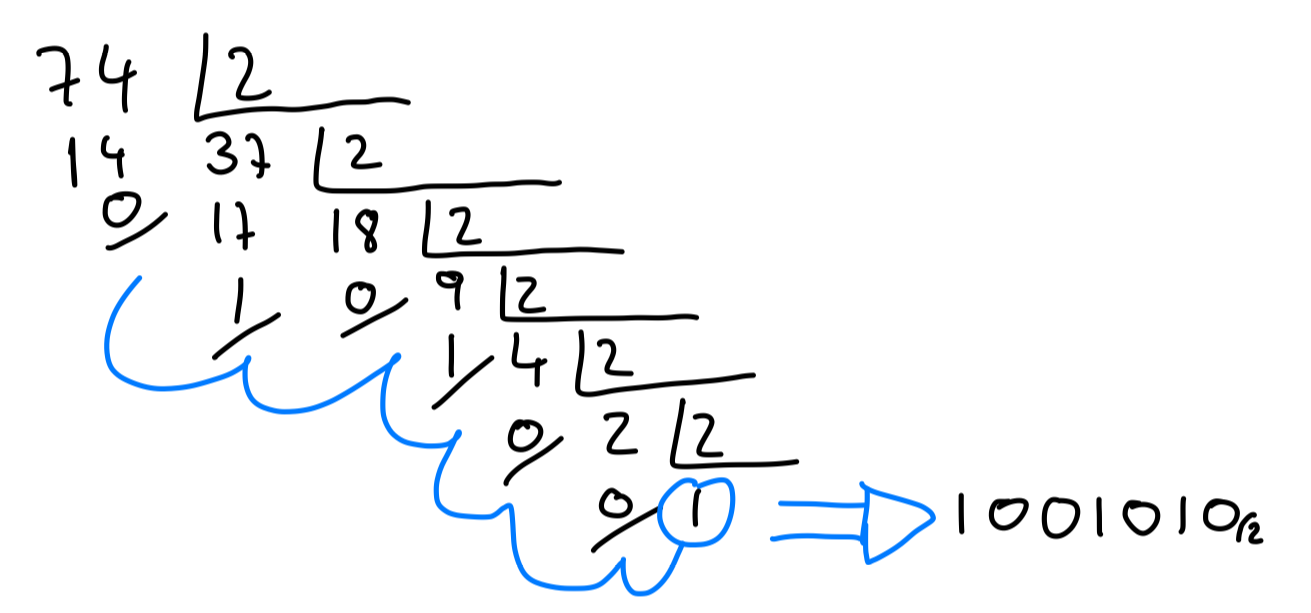 74 2
14 37 2
0 17 18 2
1 0 9 2
1 4 2
0 2 2
0 1 1001010/2